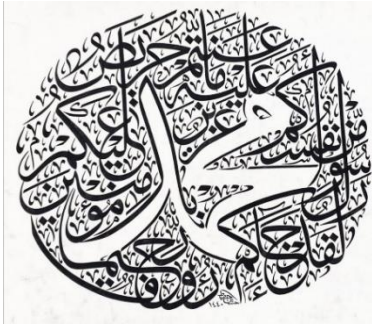 محمد
لقد جاءكم رسول من أنفسكم عزيز عليه ما عنتم حريص عليكم بالمؤمنين رؤوف رحيم